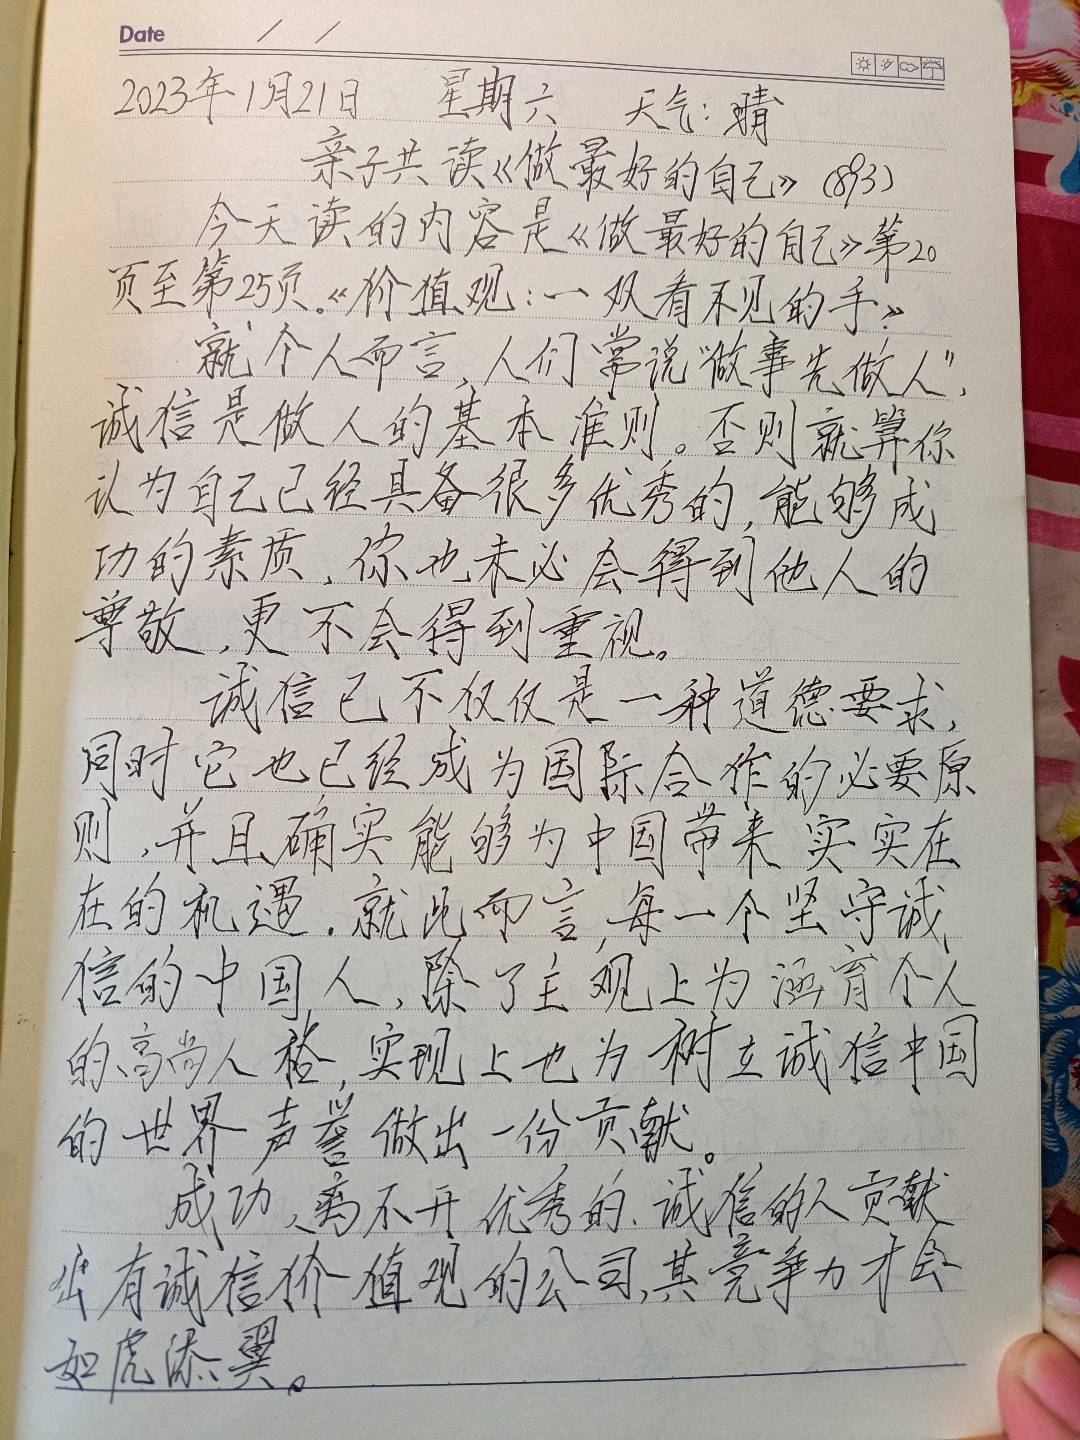 Date / /
2023年1月21日 星期六 天气:晴
亲子共读《做最好的自己》(893)
今天读的内容是《做最好的自己》第20
页至第25页。《价值观:一双看不见的手》
就个人而言,人们常说"做事先做人",
诚信是做人的基本准则。否则就算你
认为自己已经具备很多优秀的,能够成
功的素质,你也未必会得到他人的
尊敬,更不会得到重视。
诚信已不仅仅是一种道德要求,
同时它也已经成为国际合作的必要原
则,并且确实能够为中国带来实实在
在的机遇。就此而言,每一个坚守诚
信的中国人,除了主观上为涵育个人
的高尚人格,实现上也为树立诚信中国
的世界声誉做出一份贡献。
成功,离不开优秀的、诚信的人贡献
出有诚信价值观的公司,其竞争力才会
如虎添翼。